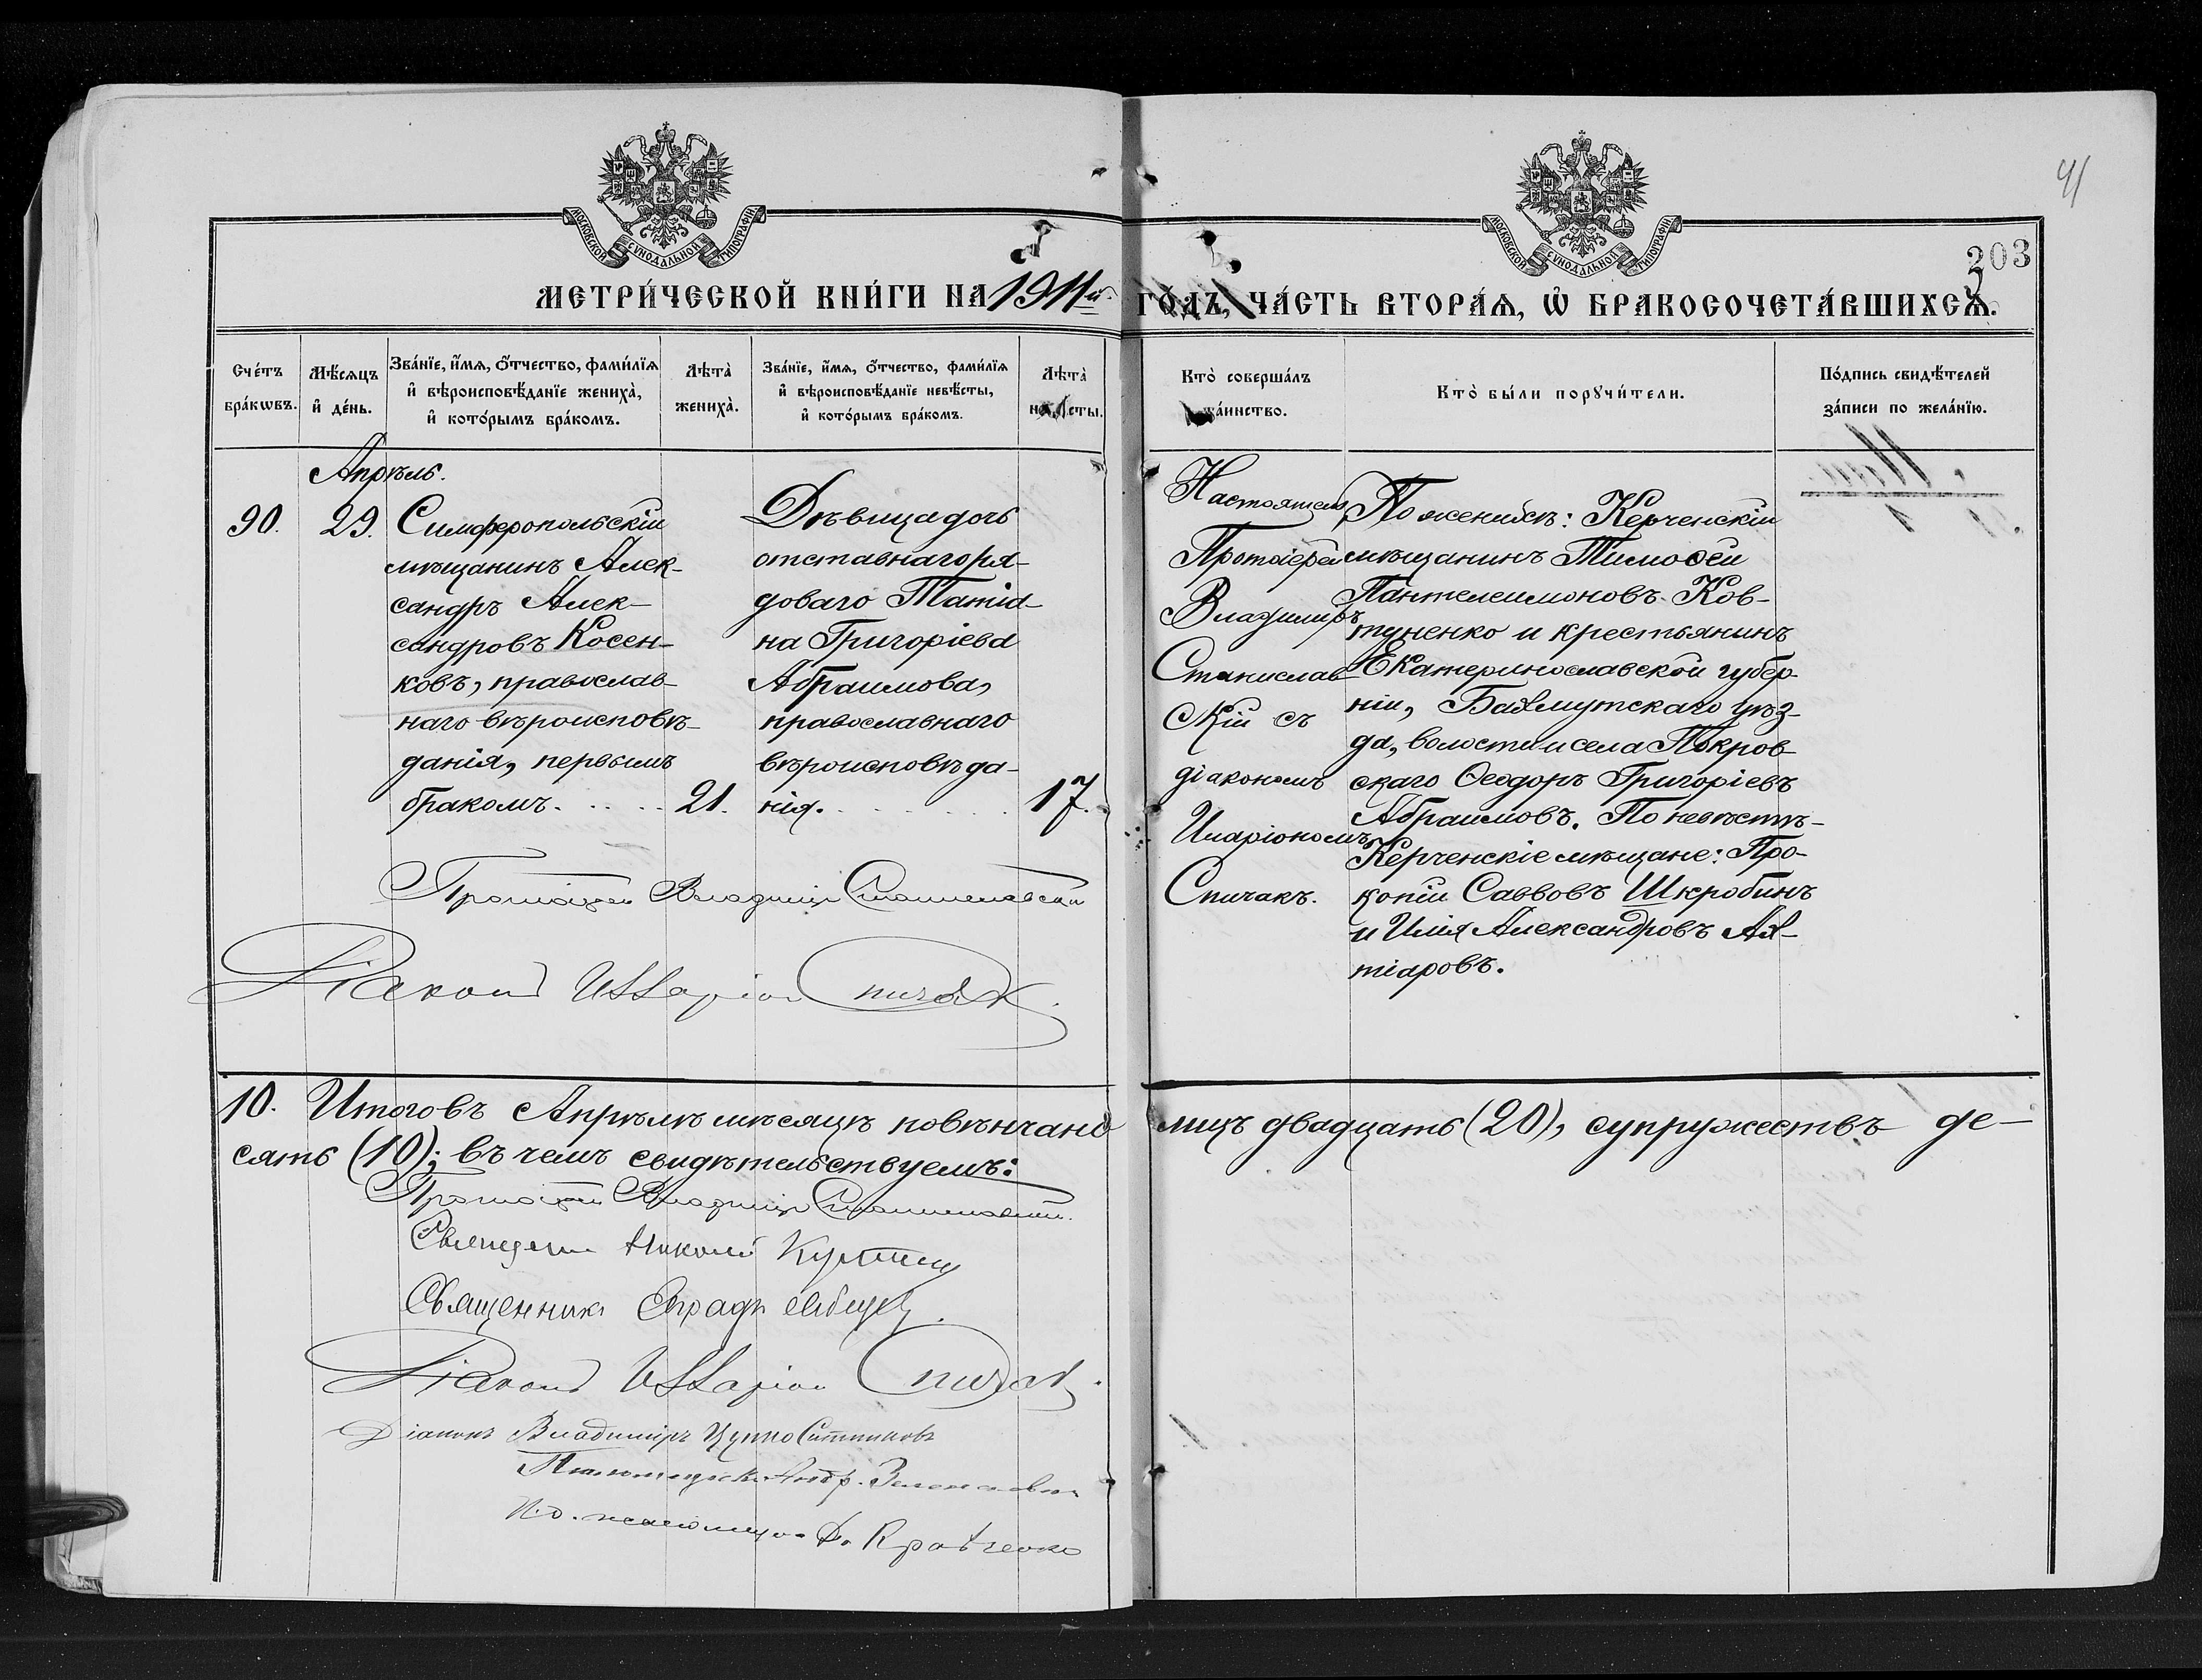 41
203
МОСКОВСКОЙ СѴНОДАЛЬНОЙ ТИПОГРАФІИ
МОСКОВСКОЙ СѴНОДАЛЬНОЙ ТИПОГРАФІИ
МЕТРИ́ЧЕСКОЙ КНИ́ГИ НА 1911й ГО́ДЪ, ЧА́СТЬ ВТОРА́Ѧ, Ѡ҆ БРАКОСОЧЕТА́ВШИХСѦ.
Сче́тъ бра́кѡвъ.
Мѣ́сѧцъ и҆ де́нь.
Зва́нїе, и҆́мѧ, ѻ҆́тчество, фами́лїѧ и҆ вѣроисповѣ́данїе жениха̀, и҆ кото́рымъ бра́комъ.
Лѣта̀ жениха̀.
Зва́нїе, и҆́мѧ, ѻ҆́тчество, фами́лїѧ и҆ вѣроисповѣ́данїе невѣ́сты, и҆ кото́рымъ бра́комъ.
Лѣта̀ невѣ́сты.
Кто̀ соверша́лъ та́инство.
Кто̀ бы́ли порꙋчи́тели.
По́дпись свидѣ́телей за́писи по жела́нїю.
Апрѣль.
90.
29.
Симферопольскій
мѣщанинъ Алек-
сандръ Алек-
сандровъ Косен-
ковъ, православ-
наго вѣроисповѣ-
данія, первымъ
бракомъ.
21.
Дѣвица дочь
отставнаго ря-
доваго Татіа-
на Григоріева
Абраимова,
православнаго
вѣроисповѣда-
нія.
17.
Настоятель
Протоіерей
Владимиръ
Станислав-
скій съ
діакономъ
Иларіономъ
Спичакъ.
По женихѣ: Керченскій
мѣщанинъ Тимоѳей
Пантелеимоновъ Ков-
туненко и крестьянинъ
Екатеринославской губер-
ніи, Бахмутскаго уѣз-
да, волости и села Покров-
скаго Ѳеодоръ Григоріевъ
Абраимовъ. По невѣстѣ-
Керченскіе мѣщане: Про-
копій Саввовъ Шкробинъ
и Илія Александровъ Ах-
тіаровъ.
Протоіерей Владимиръ Станиславскій
Діаконъ Илларіонъ Спичакъ.
10. Итого въ Апрѣлѣ мѣсяцѣ повѣнчано лицъ двадцать (20), супружествъ де-
сять (10); въ чемъ свидѣтельствуемъ:
Протоіерей Владимиръ Станиславскій.
Священникъ Николай
Священникъ
Діаконъ Илларіонъ Спичакъ.
Діаконъ Владимиръ
И. д. псаломщ. Кравченко